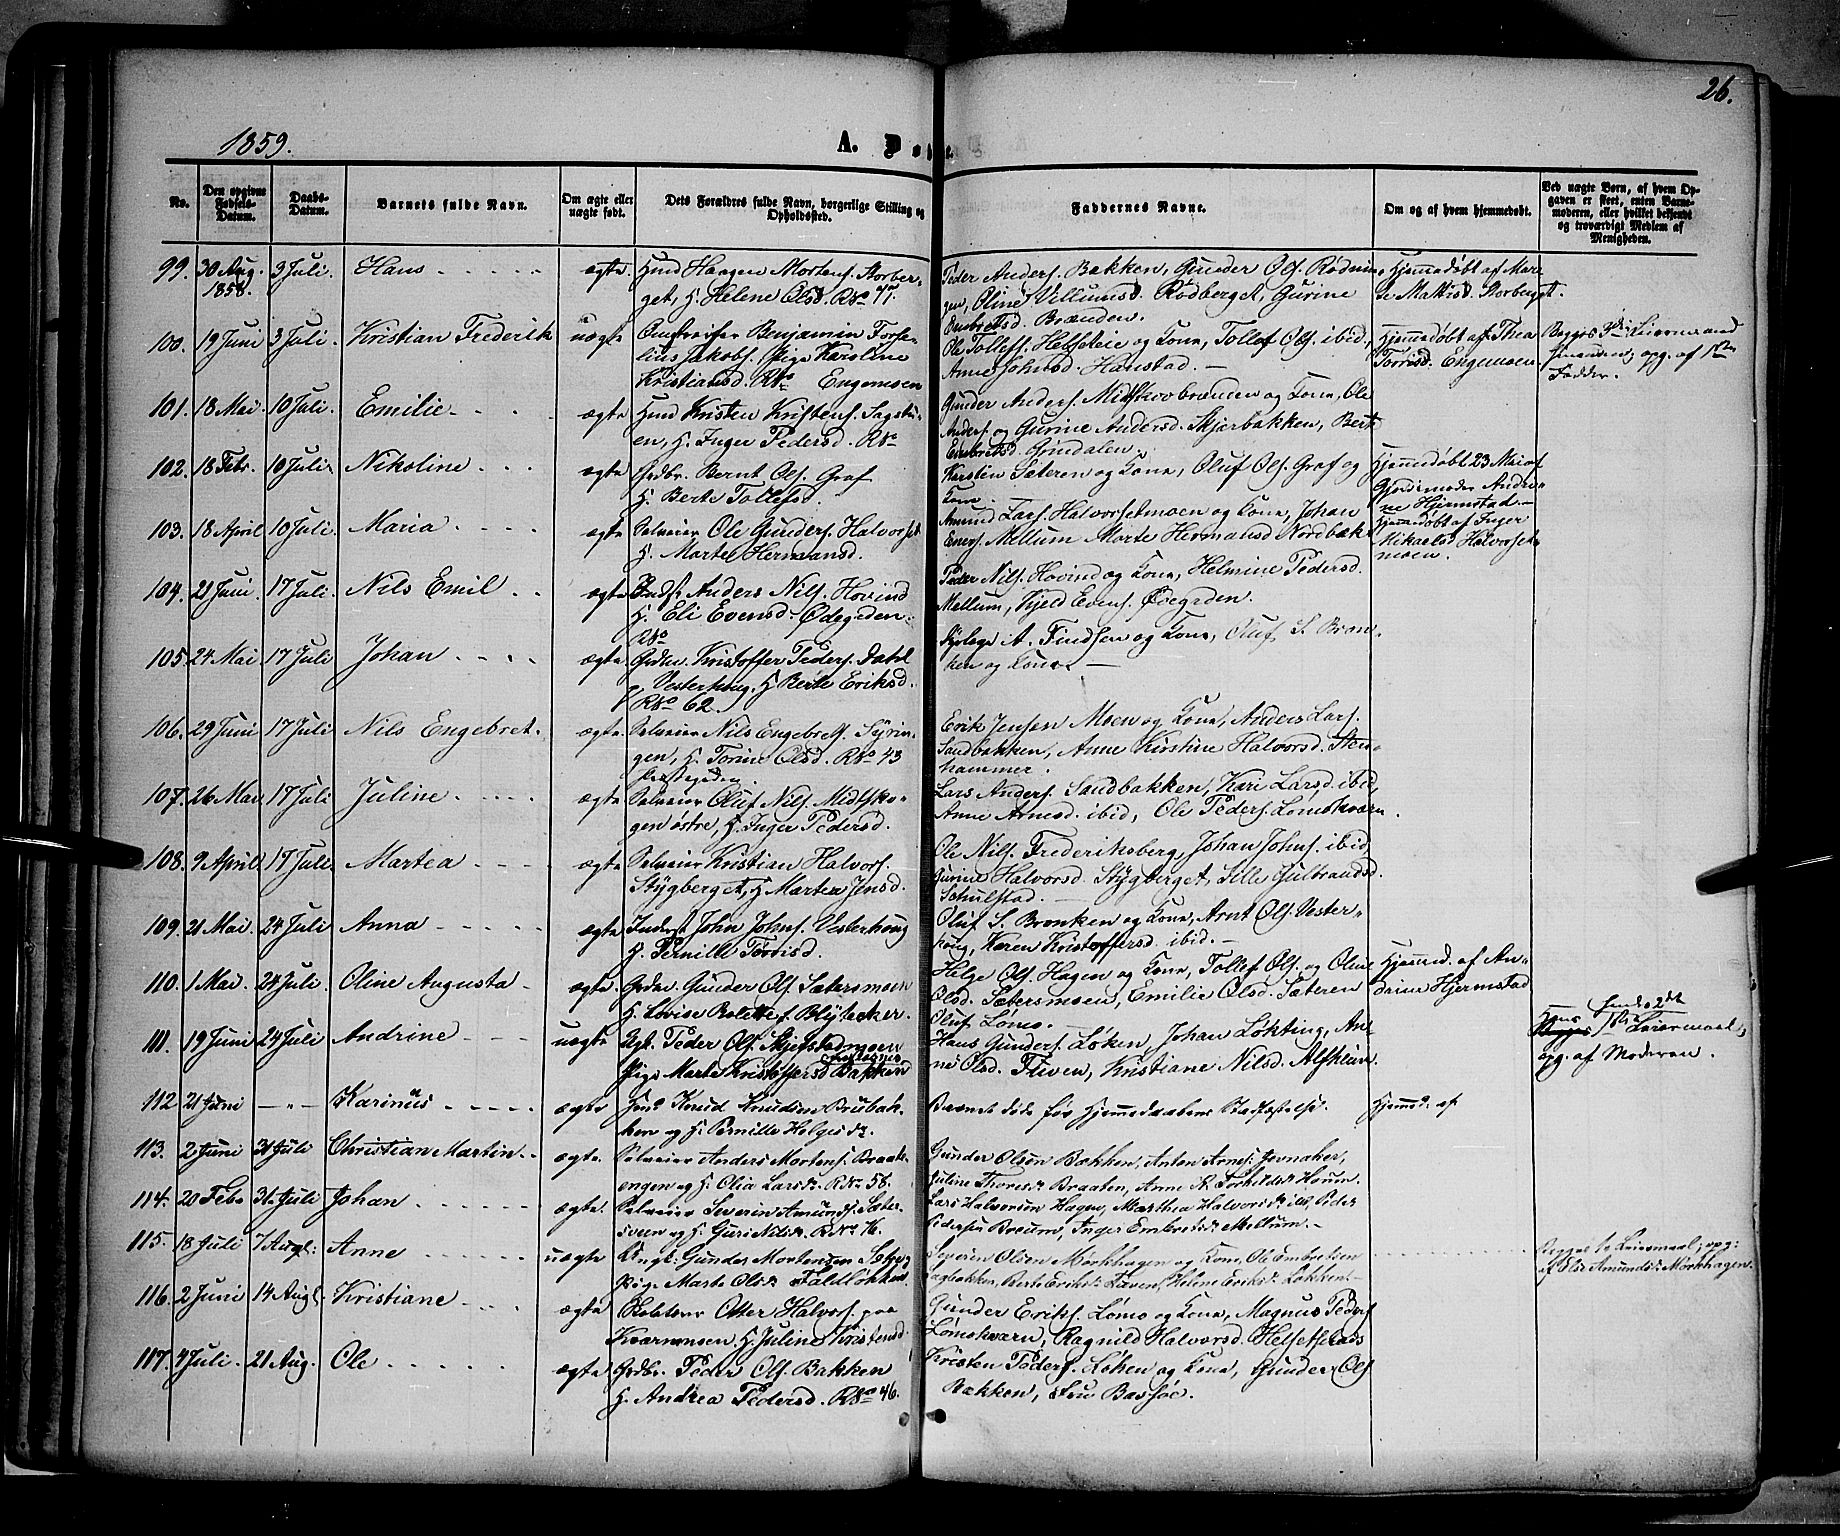 26.
1859.
A. Døbte.
No.
Den opgivne Fødsels-Datum.
Daabs-Datum.
Barnets fulde Navn.
Om ægte eller uægte født.
Dets Forældres fulde Navn, borgerlige Stilling og Opholdssted.
Faddernes Navne.
Om og af hvem hjemmedøbt.
Ved uægte Børn, af hvem Opgaven er skeet, enten Barnemoderen, eller hvilket bekjendt og troværdigt Medlem af Menigheden.
99. 30 Aug. 1858. 3 Juli. Hans ægte
Hmd Haagen Mortens. Storber-
get, H. Helene Olsd. RNo 77.
Peder Anders. Bakken, Gunder Ols. Rødnin-
gen, Oline Villumsd. Rødberget, Gurine
Embretsd. Brænden.
Hjemmedøbt af Mar-
te Mattisd. Storberget.
100. 19 Juni 3 Juli. Kristian Frederik uægte
Benjamin Forse-
lius Jakobs. Pige Karoline
Kristiansd. RNo Engemoen
Ole Tollefs. Helseteie og Kone, Tollef Ols. ibid,
Anne Johnsd. Hanstad. —
Hjemmedøbt af Thea
Torrisd. Engemoen
Begges 3die Leiermaal
opg. af 1ste
Fadder.
101. 18 Mai 10 Juli. Emilie ægte
Hmd Kristen Kristens. Sagstu-
en, H. Inger Pedersd. RNo
Gunder Anders. Midtskovbrænden og Kone, Ole
Anders. og Gurine Andersd. Skjærbakken, Berte
Embretsd. Grindalen.
102. 18 Febr. 10 Juli. Nikoline ægte
Grdbr. Bernt Ols. Graf
H. Berte Tollefsd.
Karsten Sæteren og Kone, Oluf Ols. Graf og
Kone.
Hjemmedøbt 23 Mai af
Gjordemoder Andri-
ne Hjermstad.
103. 18 April 10 Juli Maria ægte
Selveier Ole Gunders. Halvorset
H. Marte Hermansd.
Amund Lars. Halvorsetmoen og Kone, Johan
Eners. Mellum Marte Hermansd Nordbæk
Hjemmedøbt af Inger
Mikaelsd Halvorset-
moen.
104. 21 Juni. 17 Juli. Nils Emil ægte
Inds. Anders Nils. Hovind
H. Eli Evensd. Ødegrden.
RNo
Peder Nils. Hovind og Kone, Helmine Pedersd.
Mellum, Kjeld Evens. Ødegrden.
105 24 Mai 17 Juli Johan ægte
Grdbr. Kristoffer Peders. Dahl
p. Vesterhaug. H Berte Eriksd.
RNo 62.
A. Findsen og Kone, Oluf S. Bron-
ken og Kone. —
106. 29 Juni 17 Juli Nils Engebret. ægte
Selveier Nils Engebrets. Syrin-
gen, H. Torine Olsd. RNo 43
Erik Jensen Moen og Kone, Anders Lars.
Sandbakken, Anne Kirstine Halvorsd. Sten-
hammer.
107. 26 Mai 17 Juli Juline ægte
Præstegrden.
Selveier Oluf Nils. Midtsko-
gen østre, H. Inger Pedersd.
Lars Anders. Sandbakken, Kari Larsd. ibid,
Anne Arnesd. ibid, Ole Peders. Lømokværn.
108. 9 April 17 Juli. Martea ægte
Selveier Kristian Halvors.
Stygberget, H Martea Jensd.
Ole Nils. Frederiksberg, Johan Johns. ibid,
Gurine Halvorsd. Stygberget, Sille Gulbrandsd.
Schulstad. —
109. 21 Mai. 24 Juli Anna ægte
Inderst John Johns. Vesterhaug
H. Pernille Torrisd.
Oluf S. Bronken og Kone, Arnt Ols. Vester-
haug, Karen Kristoffersd. ibid. —
110. 1 Mai. 24 Juli. Oline Augusta ægte
Grdbr. Gunder Ols. Sætersmoen
H. Lovise Bolette f. Blytecker.
Helge Ols. Hagen og Kone, Tollef Ols. og Oline
Olsd. Sætersmoen, Emilie Olsd. Sæteren
Oluf Lømo. —
Hjemmd. af An-
drine Hjermstad
111. 19 Juni 24 Juli Andrine uægte
Ugk. Peder Ols. Skjefstadmoen
Pige Marte Kristoffersd Bakken
Hans Gunders. Løken, Johan Løkting, An-
ne Olsd. Floen, Kristiane Nilsd. Alfheim.
Hans 1ste Leiermaal, hendes 2det
opg. af Moderen.
112 21 Juni — „ — Karinus ægte
Hmd Knud Knudsen Brubak-
ken og H. Pernille Helgesdr.
Barnet døde før Hjemmedaabens Stadfæstelse.
Hjemd. af
113. 2 Juni 31 Juli Christian Martin ægte
Selveier Anders Mortens. Braat-
engen og H. Olia Larsdr. RNo 58.
Gunder Olsen Bakken, Anton Arnes. Jevnaker,
Juline Thoresdr. Braaten, Anne K. Torkildsdr. Hovin.
114. 20 Febr 31 Juli Johan ægte
Selveier Severin Amunds. Sæter-
sveen og H. Guri Nilsdr. RNo 76.
Lars Halvorsen Hagen, Marthea Halvorsdr. ibd, Peder
Pedersen Broum, Inger Embretsdr. Mellum. —
115. 18 Juli 7 Augs. Anne uægte
Ungk. Gunder Mortensen Sæter
Pige Marte Olsdr. Faldlökken.
Severin Olsen Mørkhagen og Kone, Ole Embretsen
Hagbakken, Berte Eriksdr. Floen, Helene Eriksdr. Løkken.
Begges 1ste Leiermaal, opg:
af Else Amundsdr. Mørkhagen.
116. 2 Juni 14 Augs. Kristiane ægte
Otter Halvors. paa
Kværnmoen H. Juline Kristensd.
Gunder Eriks. Lømo og Kone, Magnus Peders.
Lømokværn, Ragnild Halvorsd. Helsetplads
117. 4 Juli. 21 Aug. Ole ægte
Grdbr. Peder Ols. Bakken
H. Andrea Pedersd. RNo 46.
Kristen Peders. Løken og Kone, Gunder Ols.
Bakken, Fru Bassøe.